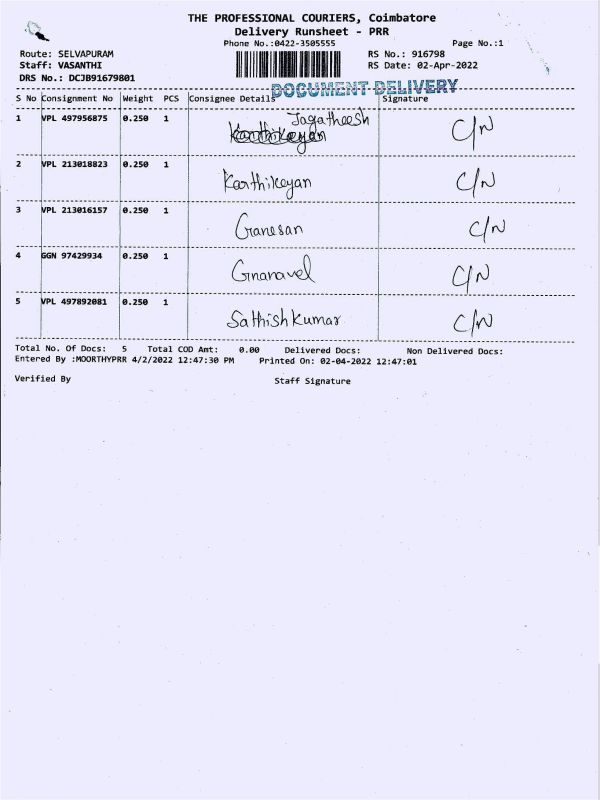 THE PROFESSIONAL COURIERS, Coimbatore
Delivery Runsheet - PRR
Phone No.:0422-3505555 Page No.:1
Route: SELVAPURAM RS No.: 916798
Staff: VASANTHI RS Date: 02-Apr-2022
DRS No.: DCJB91679801
DOCUMENT DELIVERY
S No Consignment No Weight PCS Consignee Details Signature
1 VPL 497956875 0.250 1 Jagatheesh C/N
Karthikeyan
2 VPL 213018823 0.250 1 Karthikeyan C/N
3 VPL 213016157 0.250 1 Ganesan C/N
4 GGN 97429934 0.250 1 Gnanavel C/N
5 VPL 497892081 0.250 1 Sathish Kumar C/N
Total No. Of Docs: 5 Total COD Amt: 0.00 Delivered Docs: Non Delivered Docs:
Entered By :MOORTHYPRR 4/2/2022 12:47:30 PM Printed On: 02-04-2022 12:47:01
Verified By Staff Signature